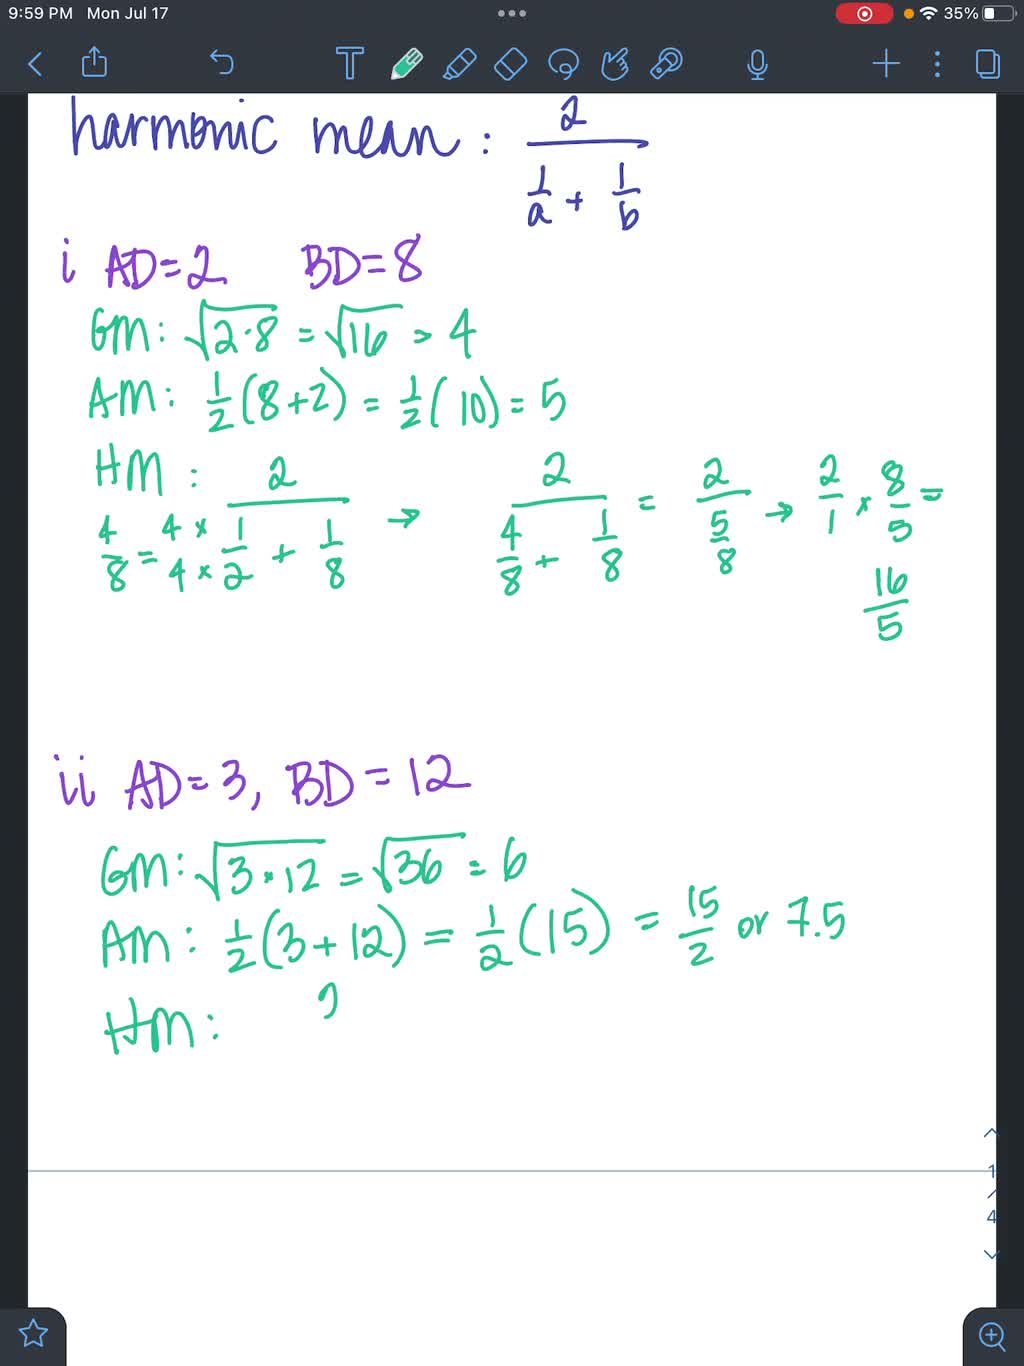 9:59 PM Mon Jul 17 35%
harmonic mean: 2/(1/a + 1/b)
i AD=2 BD=8
GM: √(2·8) = √16 = 4
AM: 1/2(8+2) = 1/2(10) = 5
HM: 2/(4×1/4×2 + 1/8) → 2/(4/8 + 1/8) = 2/(5/8) → 2/1 × 8/5 =
4/8 =
16/5
ii AD=3, BD=12
GM: √(3·12) = √36 = 6
AM: 1/2(3+12) = 1/2(15) = 15/2 or 7.5
HM: 2
1
4